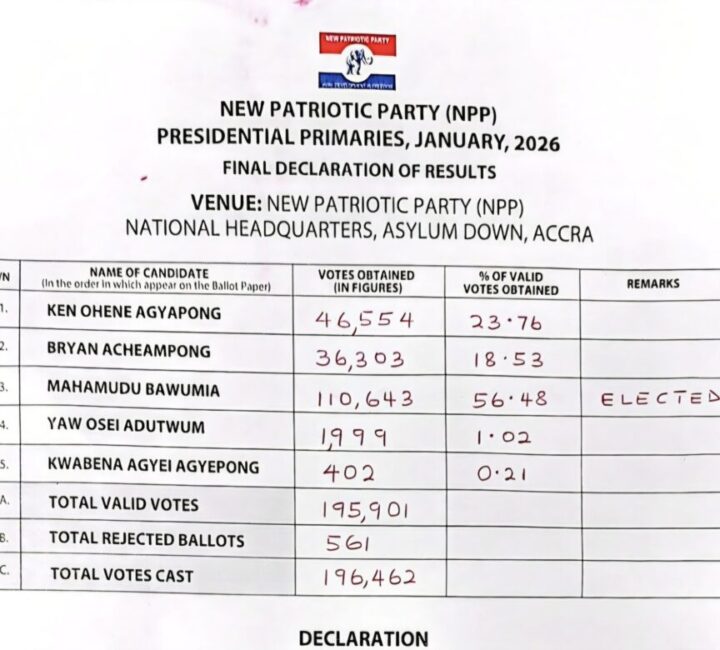 NEW PATRIOTIC PARTY
NEW PATRIOTIC PARTY (NPP)
PRESIDENTIAL PRIMARIES, JANUARY, 2026
FINAL DECLARATION OF RESULTS
VENUE: NEW PATRIOTIC PARTY (NPP)
NATIONAL HEADQUARTERS, ASYLUM DOWN, ACCRA
/N NAME OF CANDIDATE (In the order in which appear on the Ballot Paper) VOTES OBTAINED (IN FIGURES) % OF VALID VOTES OBTAINED REMARKS
1. KEN OHENE AGYAPONG 46,554 23.76
2. BRYAN ACHEAMPONG 36,303 18.53
3. MAHAMUDU BAWUMIA 110,643 56.48 ELECTED
4. YAW OSEI ADUTWUM 1,999 1.02
5. KWABENA AGYEI AGYEPONG 402 0.21
A. TOTAL VALID VOTES 195,901
B. TOTAL REJECTED BALLOTS 561
C. TOTAL VOTES CAST 196,462
DECLARATION